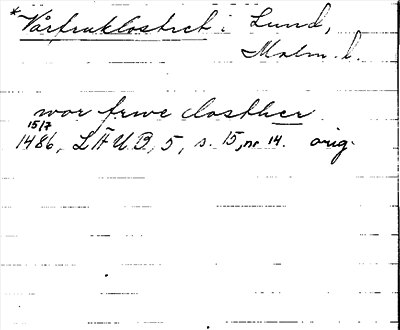 *Vårfruklostret i Lund,
Malm. l.
wor frwe closther
15/7
1486, LÄUB, 5, s. 15, nr 14. orig.